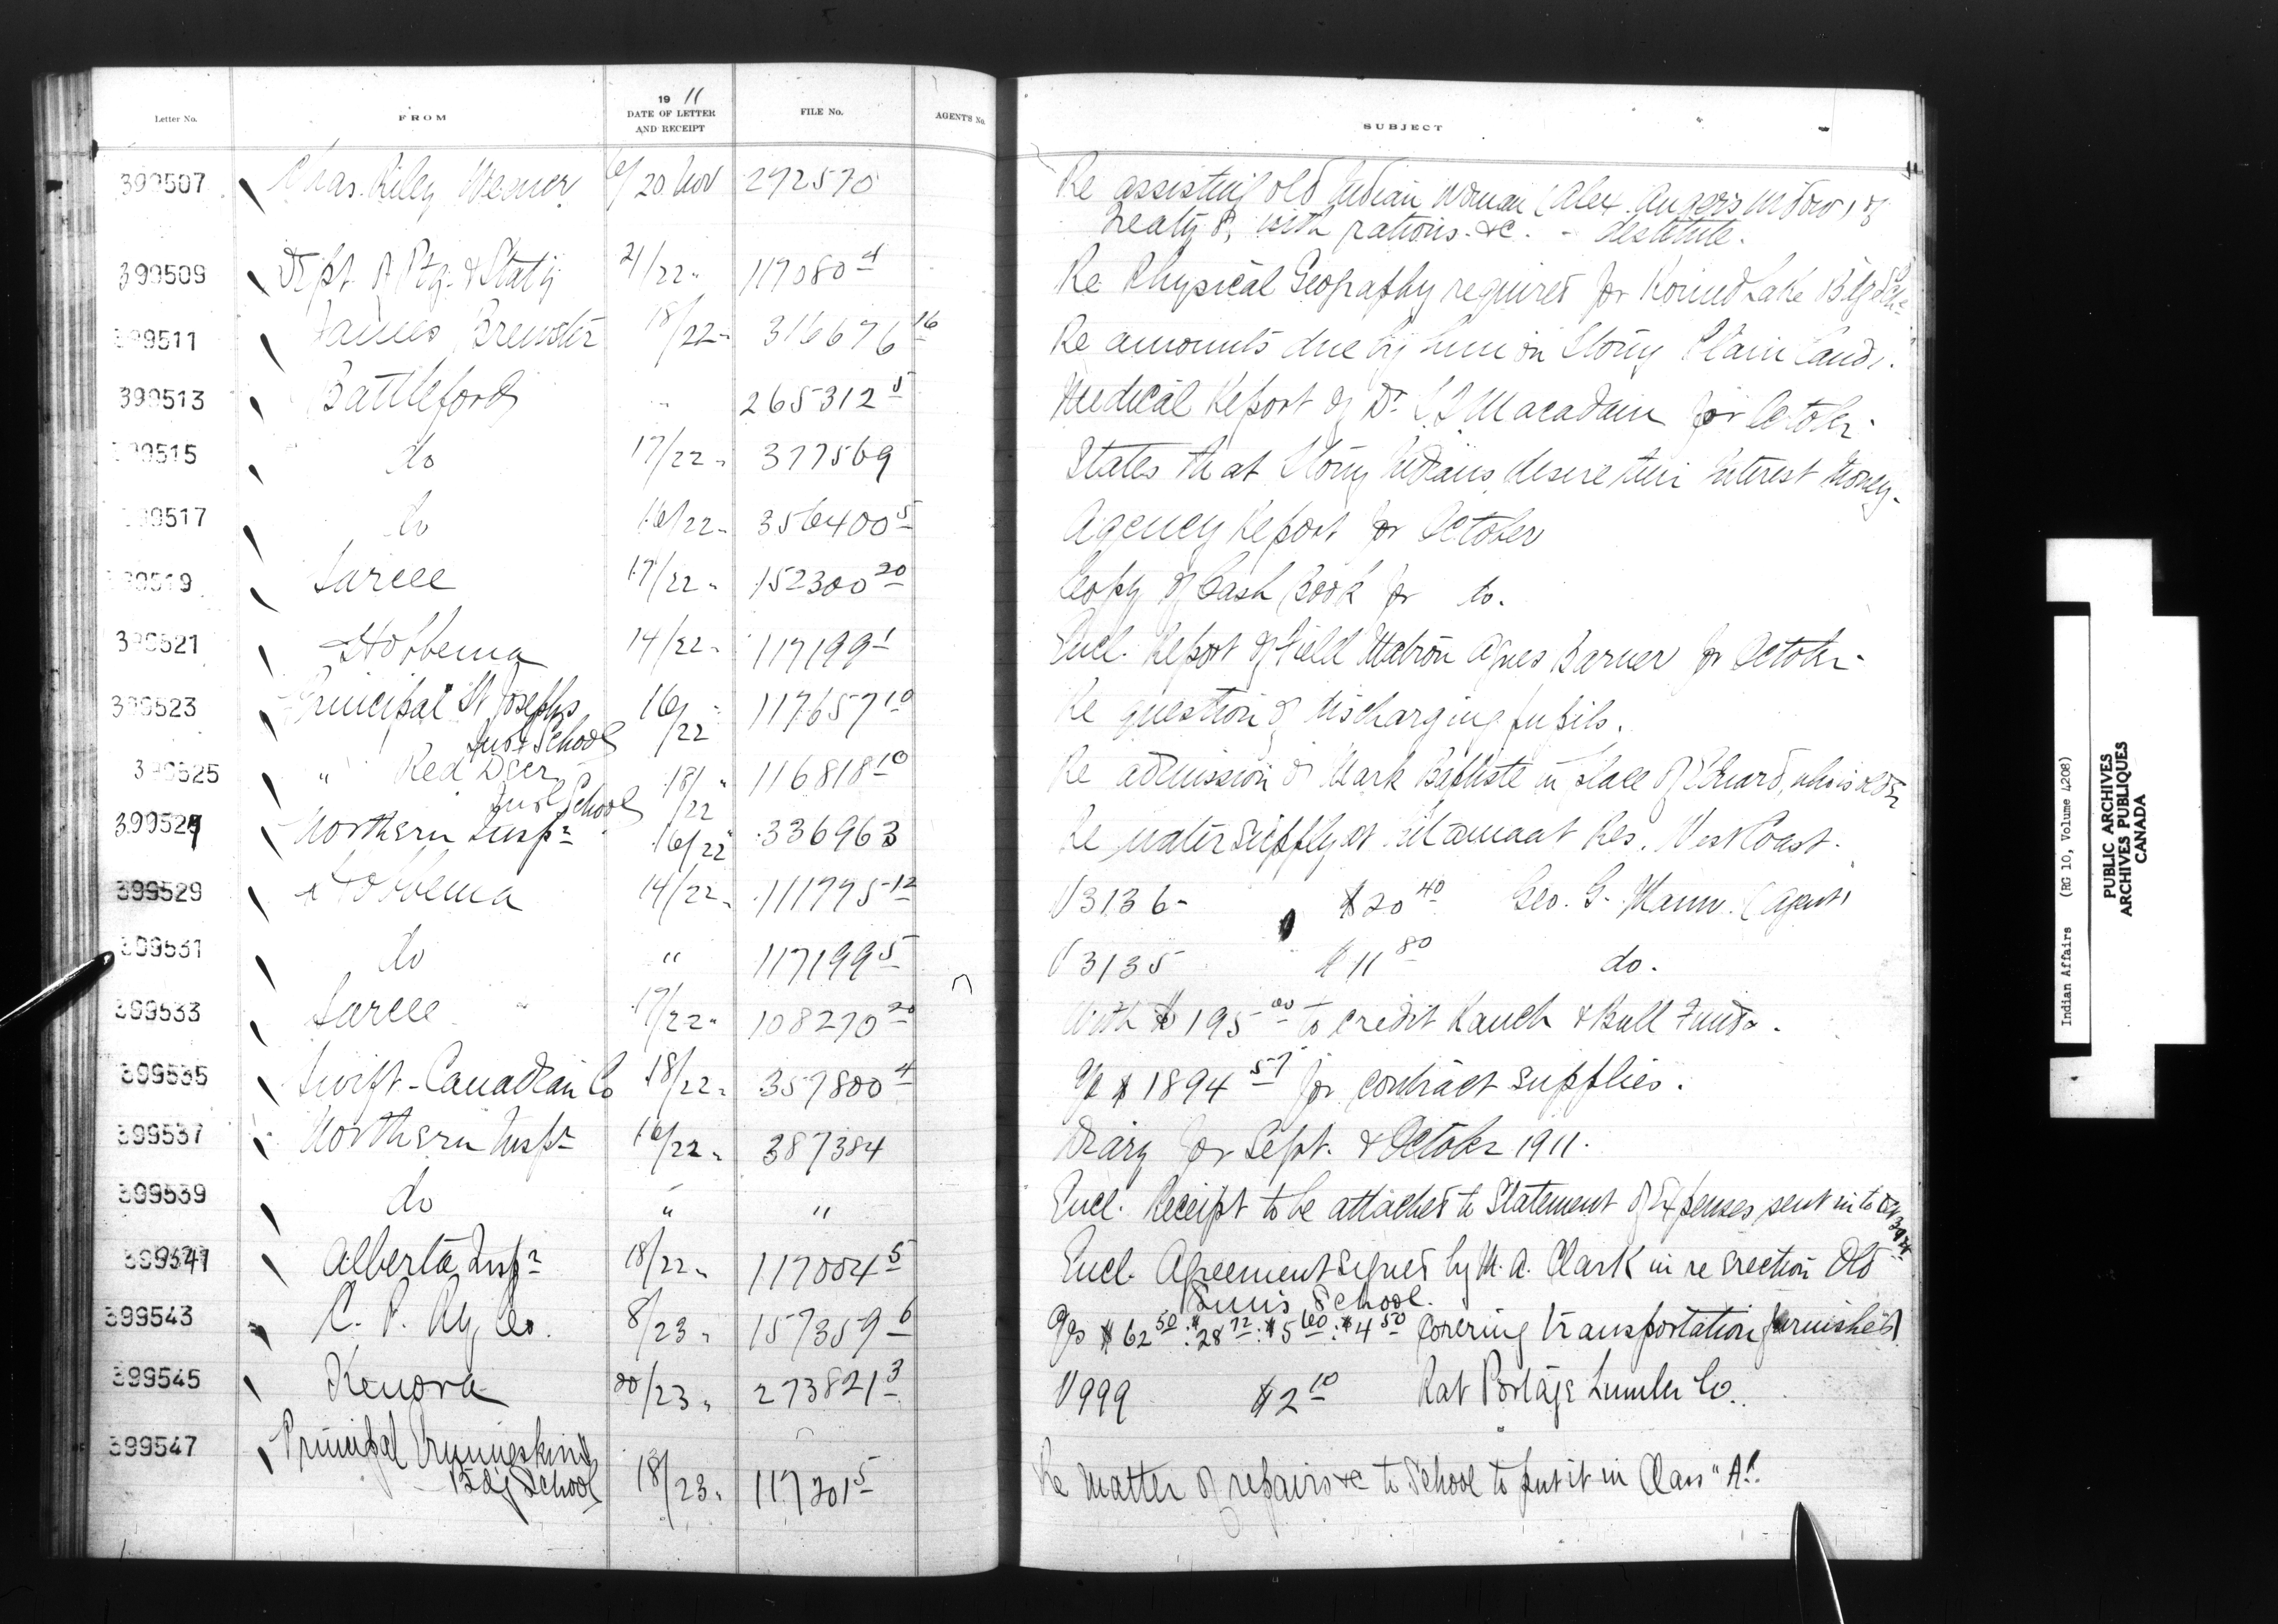 Letter No. FROM 19 11 DATE OF LETTER AND RECEIPT FILE No. AGENT'S No. SUBJECT
399507 Chas. Riley Weaver 6/20 Nov 292570 Re assisting old Indian Woman (Alex. Angers widow) of
Treaty 8, with rations &c. - destitute.
399509 Dept of Ptg. & Staty 21/22 " 117080 4 Re Physical Geography required for Round Lake Bdg Sch.
399511 James Brewster 18/22 " 316676 16 Re amounts due by him on Stony Plain lands.
399513 Battleford " 265312 5 Medical Report of Dr. Macadam for October.
399515 do 17/22 " 377569 States that Stony Indians desire their interest money.
399517 do 16/22 " 356400 5 Agency Report for October
399519 Sarcee 17/22 " 152300 20 Copy of Cash Book for do.
399521 Hobbema 14/22 " 117199 1 Encl. Report of Field Matron Agnes Barner for October
399523 Principal St Josephs 16/22 " 117657 10 Re question of discharging pupils.
Indl School
399525 " Red Deer 18/22 " 116818 10 Re admission of Mark Baptiste in place of who is older
Indl School
399527 Northern Inspr 16/22 " 336963 Re water supply at Kitamaat Res. West Coast.
399529 Hobbema 14/22 " 111775-12 V 3136 - $20 40 Geo. G. Mann. (Agent)
399531 do " 117199 5 V 3135 $11 80 do.
399533 Sarcee 17/22 " 108270 20 With $195 00 to credit Ranch & Bull Funds.
399535 Swift-Canadian Co 18/22 " 357800 4 a/c $1894 57 for contract supplies.
399537 Northern Inspr 16/22 " 387384 Diary for Sept. & October 1911.
399539 do " " Encl. Receipt to be attached to Statement of Expenses sent in to
399541 Alberta Inspr 18/22 " 117004 5 Encl. Agreement signed by M. A. Clark in re erection Old
Suns School.
399543 C. P. Ry Co. 8/23 " 157359 6 a/cs $62 50 : $28 72 : $5 60 : $4 50 covering transportation furnished
399545 Kenora 20/23 " 273821 3 V 999 $2 10 Rat Portage Lumber Co.
399547 Principal Ermineskins 18/23 " 117301 5 Re matter of repairs &c to School to put it in Class "A".
Bdg School
Indian Affairs (RG 10, Volume 4208)
PUBLIC ARCHIVES
ARCHIVES PUBLIQUES
CANADA